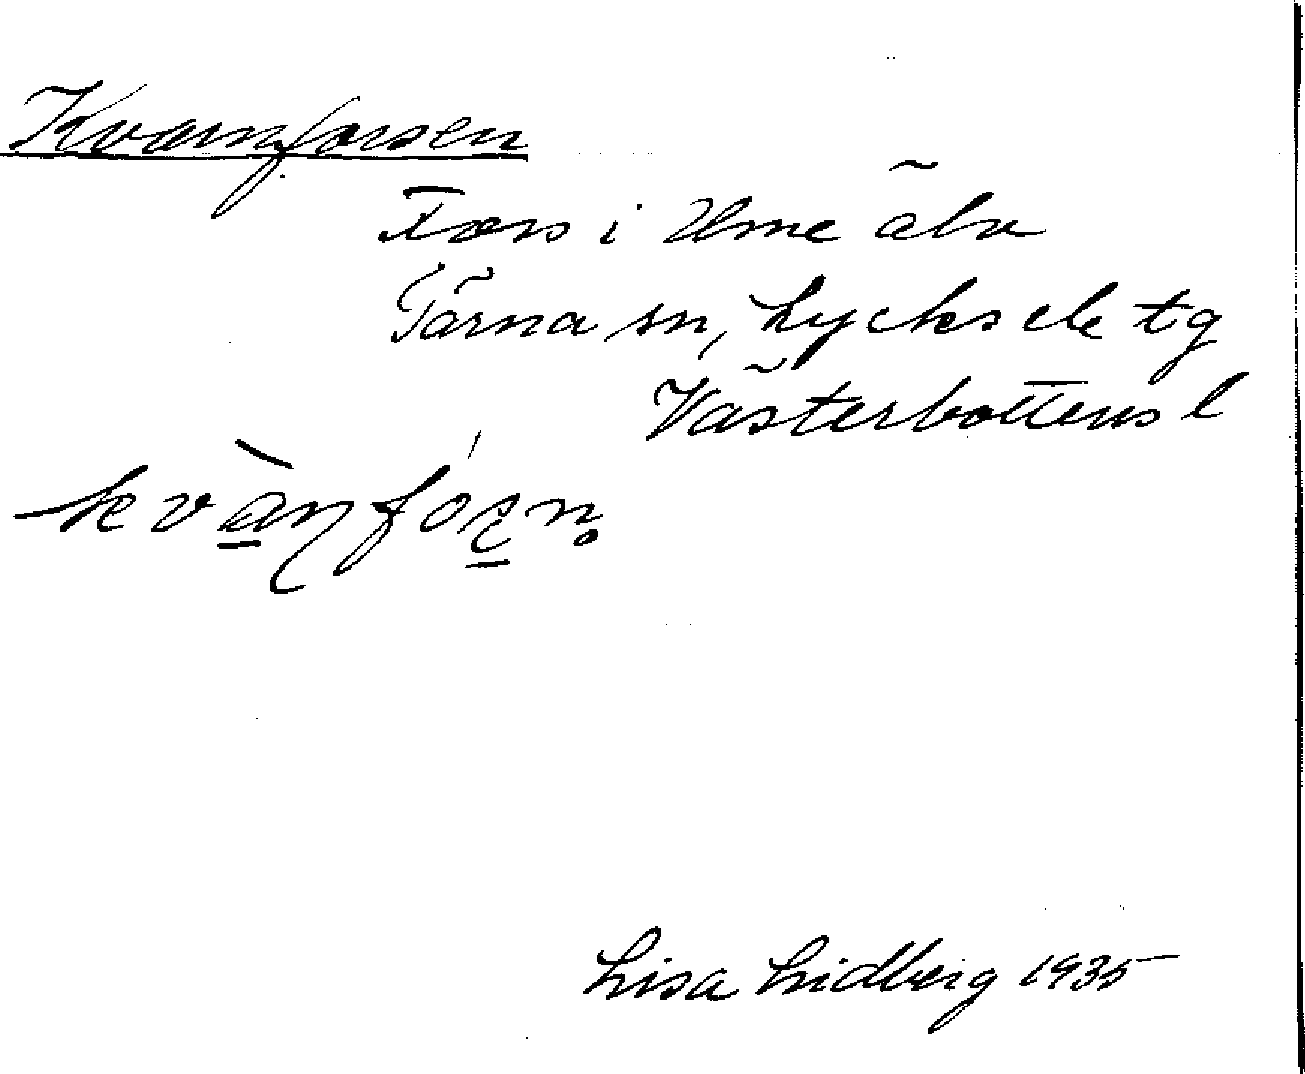 Kvarnforsen
Fors i Ume älv
Tärna sn, Lycksele tg
Västerbottens l
kvà̱ɳfó́ʂ̱n̥
Lisa Lidberg 1935